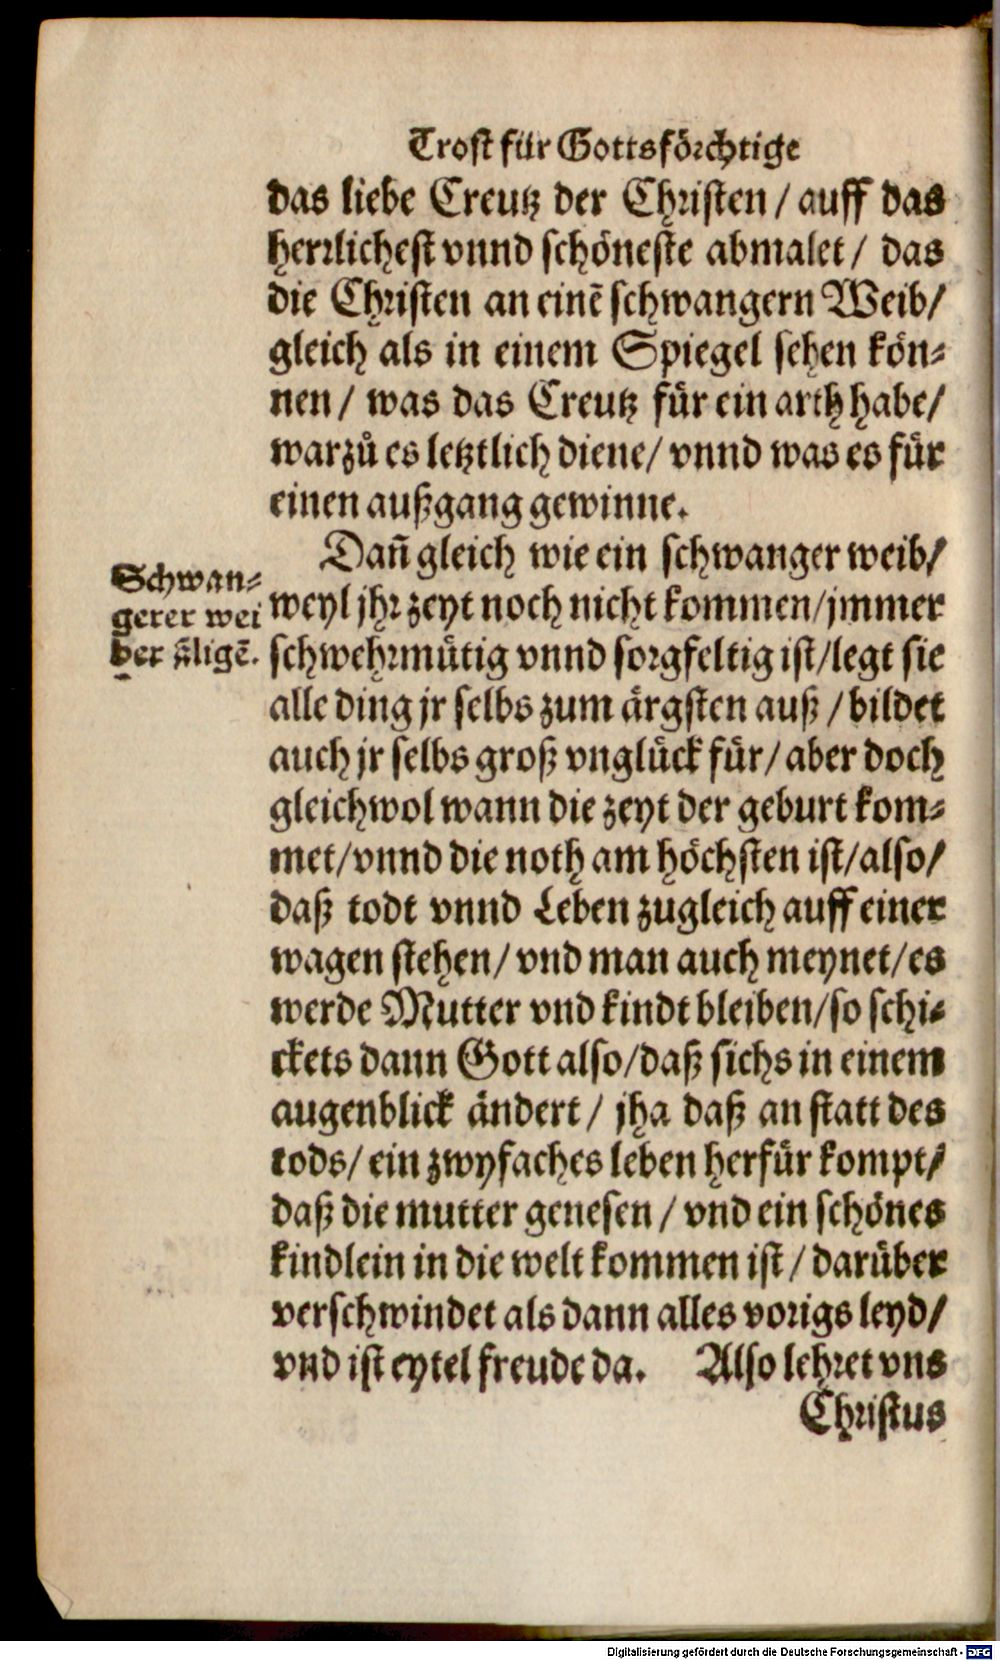 Trost für Gottsförchtige
das liebe Creutz der Christen / auff das
herrlichest vnnd schöneste abmalet / das
die Christen an einē schwangern Weib/
gleich als in einem Spiegel sehen kön-
nen / was das Creutz für ein arth habe/
warzů es letztlich diene/ vnnd was es für
einen außgang gewinne.
Dañ gleich wie ein schwanger weib/
Schwan-
gerer wei
ber
weyl jhr zeyt noch nicht kommen/jmmer
schwehrmütig vnnd sorgfeltig ist/legt sie
alle ding jr selbs zum ärgsten auß / bildet
auch jr selbs groß vnglück für/ aber doch
gleichwol wann die zeyt der geburt kom-
met/vnnd die noth am höchsten ist/also/
daß todt vnnd Leben zugleich auff einer
wagen stehen/ vnd man auch meynet/es
werde Mutter vnd kindt bleiben/so schi-
ckets dann Gott also/daß sichs in einem
augenblick ändert / jha daß an statt des
tods/ ein zwyfaches leben herfür kompt/
daß die mutter genesen / vnd ein schönes
kindlein in die welt kommen ist / darüber
verschwindet als dann alles vorigs leyd/
vnd ist eytel freude da. Also lehret vns
Christus
Digitalisierung gefördert durch die Deutsche Forschungsgemeinschaft - DFG